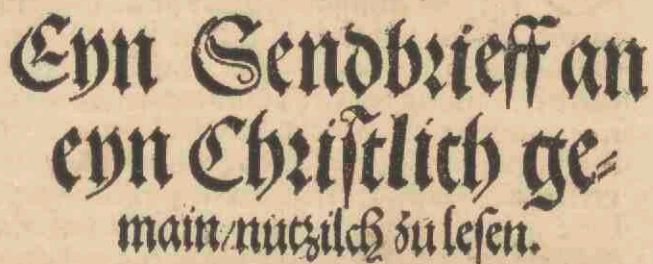 Eyn Sendbrieff an
eyn Chriſtlich ge⸗
main/nutzilch zu leſen.